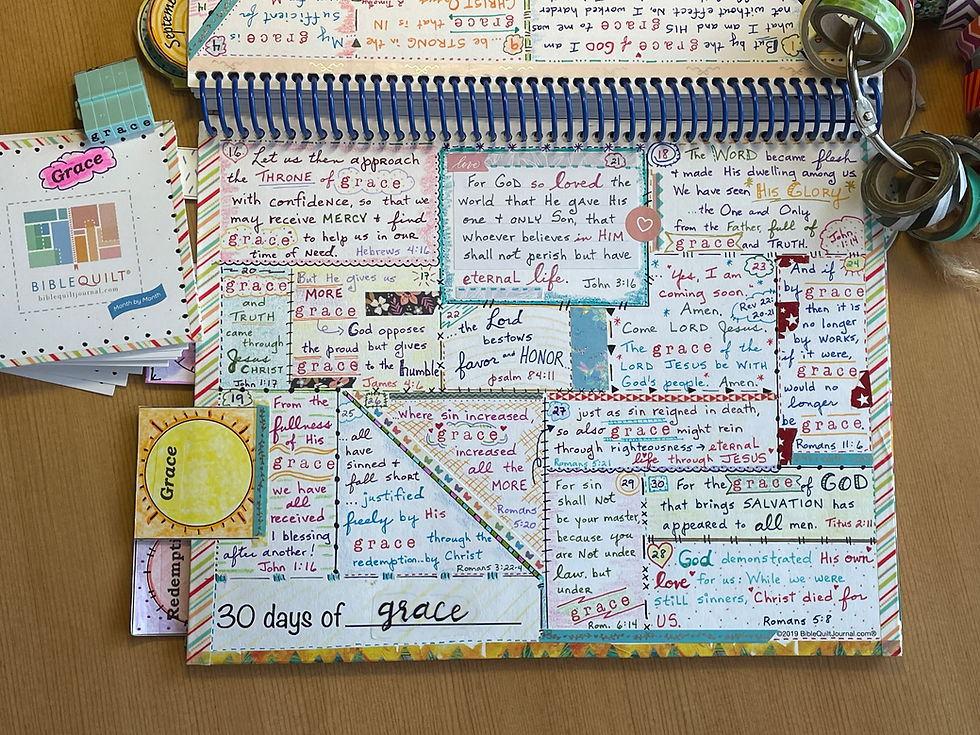 September
4
My
grace
sufficient for
9
...be STRONG in the
grace that is IN
CHRIST
1
But by the grace of God I am
what I am and HIS
to me was
without effect. No, I worked harder
grace
Grace
BIBLEQUILT®
biblequiltjournal.com
Month by Month
Grace
Redemption
16
Let us then approach
the THRONE of grace
with confidence, so that we
may receive MERCY & find
grace to help us in our
time of need. Hebrews 4:16
love
21
For GOD so loved the
world that He gave His
one & ONLY Son, that
whoever believes in HIM
shall not perish but have
eternal life. John 3:16
18
The WORD became flesh
& made His dwelling among us.
We have seen His GLORY
...the One and Only
from the Father, full of
grace and TRUTH.
John 1:14
20
grace
and
TRUTH
came
through
Jesus
CHRIST
John 1:17
17
But He gives us
MORE
grace
God opposes
the proud but gives
grace to the humble
James 4:6
22
the Lord
bestows
favor and HONOR
psalm 84:11
23
"Yes, I am
coming soon."
Amen.
Rev 22:
20-21
Come LORD Jesus.
The grace of the
LORD JESUS be WITH
God's people. Amen.
24
And if
by
grace
then it is
no longer
by WORKS,
if it were,
grace
would no
longer
be grace.
Romans 11:6
19
From the
fullness
of His
grace
we have
all
received
1 blessing
after another!
John 1:16
25
all
have
sinned &
fall short
... justified
freely by His
grace through the
redemption...by Christ
Romans 3:22-4
26
where sin increased
grace
increased
all the
MORE
Romans
5:20
27
just as sin reigned in death,
so also grace might rein
through righteousness → eternal
life through JESUS
Romans 5:21
29
For sin
shall Not
be your master,
because you
are Not under
law, but
under
grace
Rom. 6:14
30
For the grace of GOD
that brings SALVATION has
appeared to all men. Titus 2:11
28
God demonstrated His own
love for us: While we were
still sinners, Christ died for
us. Romans 5:8
30 days of grace
©2019 BibleQuiltJournal.com®